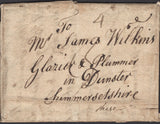 To 4
Mr James Wilkins
Glazier & Plummer
in Dunster
Summersetshire
these